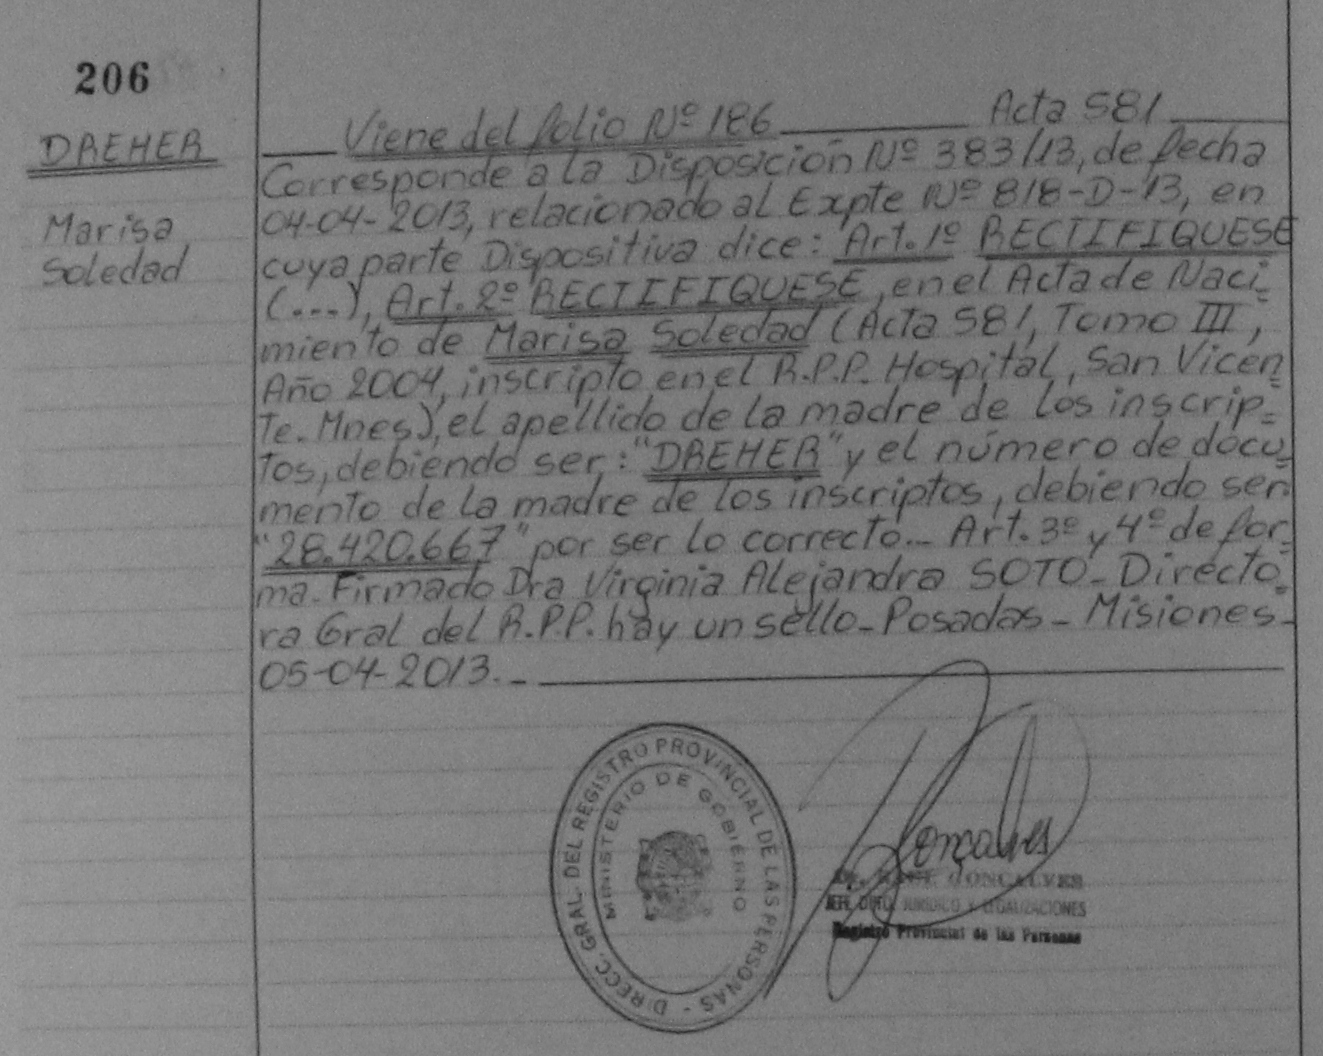 206
DREHER
Marisa
Soledad
Viene del folio Nº 186 Acta 581
Corresponde a la Disposición Nº 383/13, de fecha
04-04-2013, relacionado al Expte Nº 818-D-13, en
cuya parte Dispositiva dice: Art. 1º RECTIFIQUESE
(...), Art. 2º RECTIFIQUESE, en el Acta de Naci=
miento de Marisa Soledad (Acta 581, Tomo III,
Año 2004, inscripto en el R.P.P. Hospital, San Vicen
te. Mnes), el apellido de la madre de los inscrip=
tos, debiendo ser: "DREHER" y el número de docu_
mento de la madre de los inscriptos, debiendo ser:
"28.420.667" por ser lo correcto._ Art. 3º y 4º de for_
ma. Firmado Dra Virginia Alejandra SOTO_Directo_
ra Gral del R.P.P. hay un sello_Posadas_Misiones_
05-04-2013._
DIRECC. GRAL. DEL REGISTRO PROVINCIAL DE LAS PERSONAS -
MINISTERIO DE GOBIERNO
Gonçalves
Dr. GONCALVES
JEFE DPTO. JURIDICO Y LEGALIZACIONES
Registro Provincial de las Personas